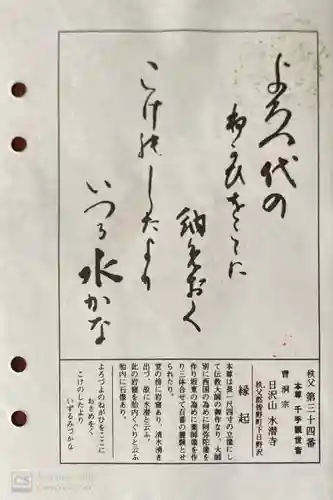 よろづ代の
ねがひをここに
納めおく
こけのしたより
いづる水かな
秩父 第三十四番
本尊 千手観世音
曹洞宗
日沢山 水潜寺
秩父郡皆野町下日野沢
縁起
本尊は長一尺四寸の立像にし
て伝教大師の御作なり、大師
別に西国の為めに阿弥陀像を
作り坂東の為めに薬師像を作
り三体合せて百番の護額とせ
られたり。
堂の傍に岩窟あり、清水湧き
出づ、故に水潜と云ふ。
此の岩窟を胎内くぐりと云ふ
胎内に石像あり。
よろづよのねがひをここに
おさめをく
こけのしたより
いずるみづかな
CS